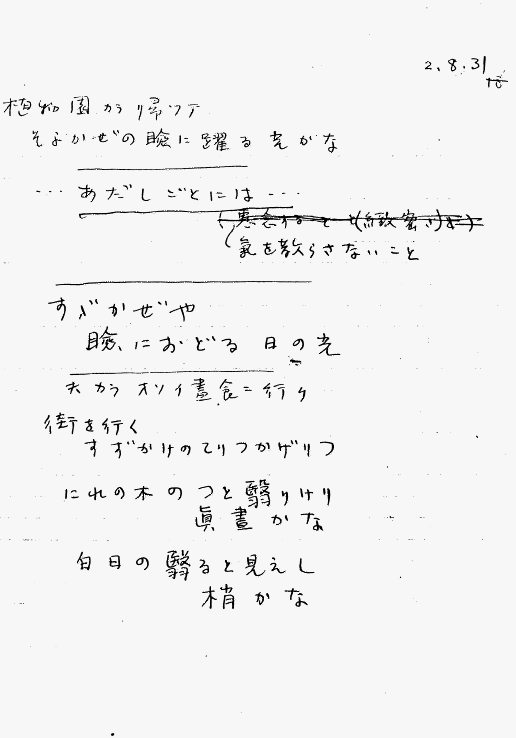 2.8.31
植物園カラ帰ツテ
そよかぜの瞼に躍る光かな
… あだしごとには …
氣を散らさないこと
すゞかぜや
瞼におどる日の光
夫カラオソイ晝食ニ行ク
街を行く
すずかけのてりつかげりつ
にれの木のつと翳りけり
眞晝かな
白日の翳ると見えし
梢かな